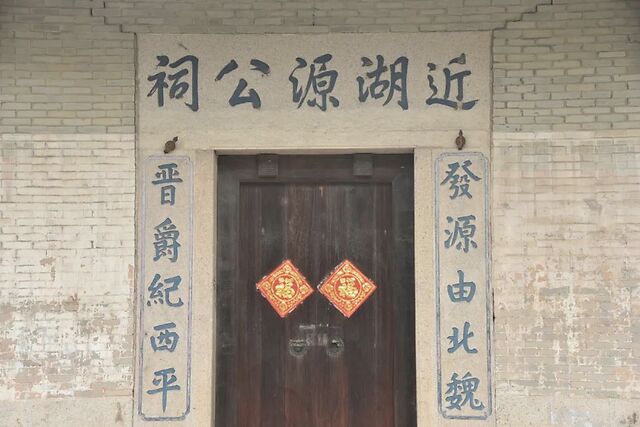 近湖源公祠
發源由北魏
晋爵紀西平
福
福